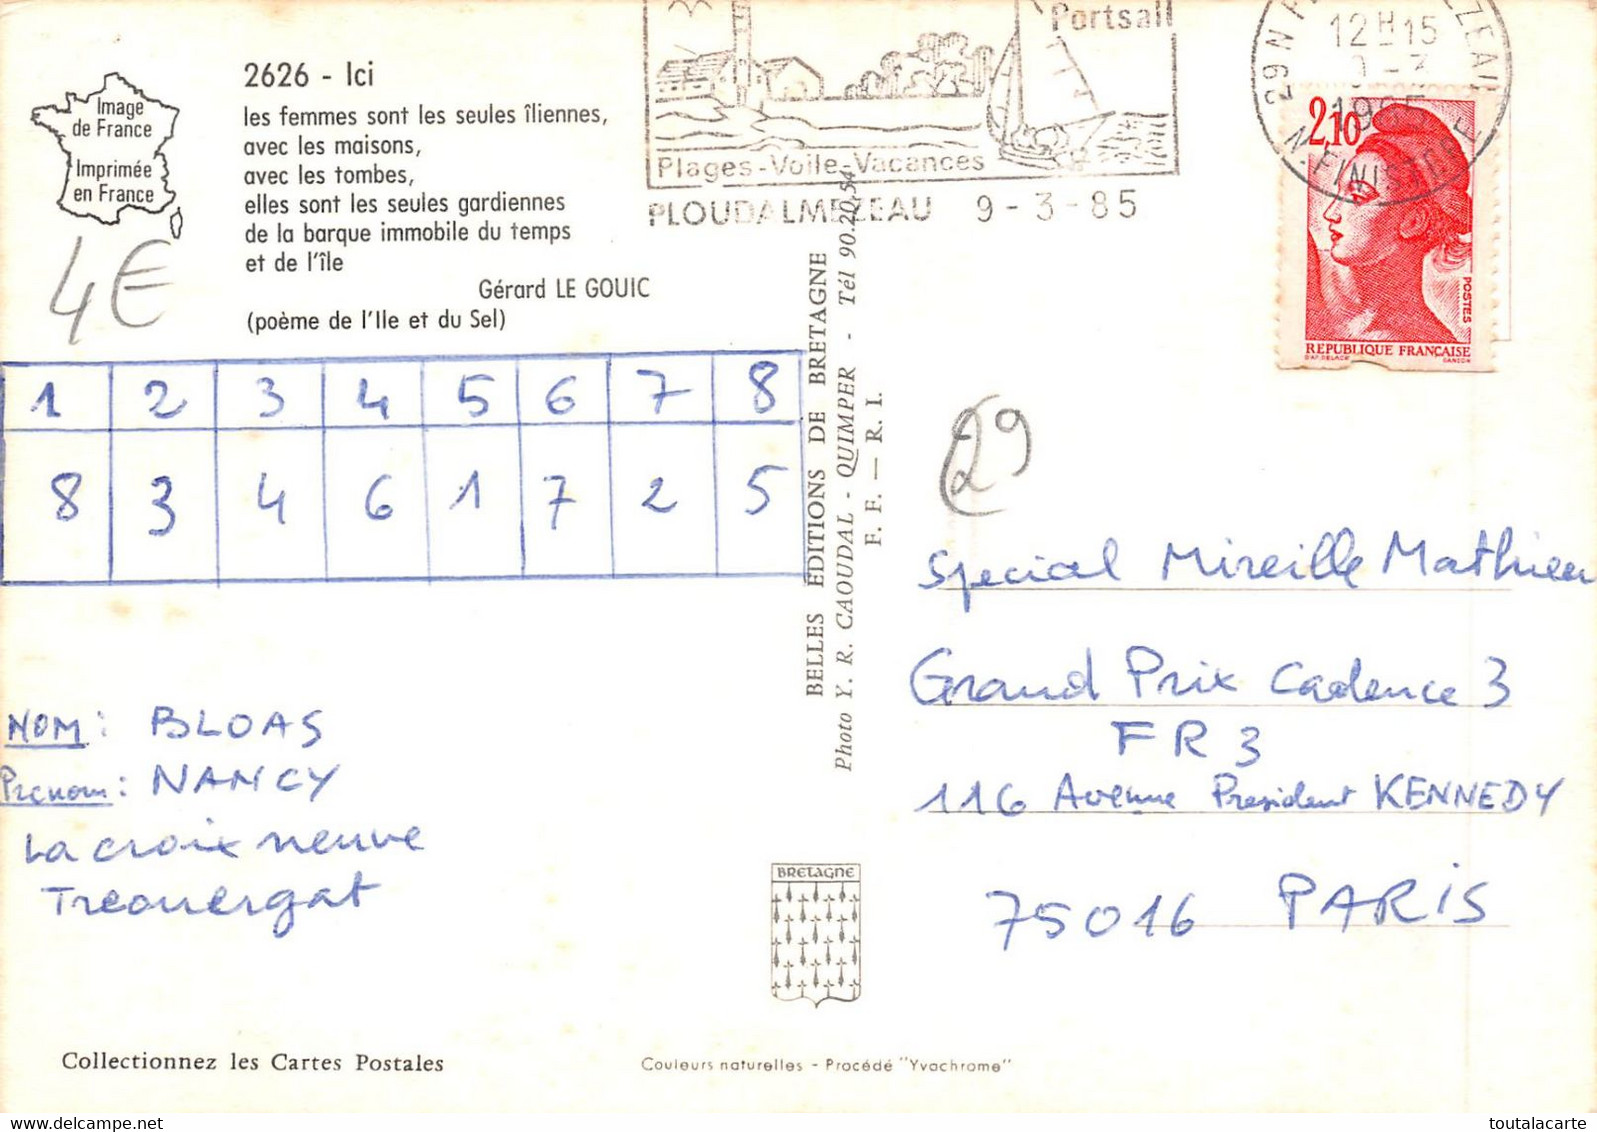 Image
de France
Imprimée
en France
4E
2626 - Ici
les femmes sont les seules îliennes,
avec les maisons,
avec les tombes,
elles sont les seules gardiennes
de la barque immobile du temps
et de l'île
Gérard LE GOUIC
(poème de l'Ile et du Sel)
Portsall
Plages-Voile-Vacances
PLOUDALMEZEAU 9-3-85
12H15
9-3
1985
29 N
N. FINISTERE
2,10
POSTES
REPUBLIQUE FRANÇAISE
D'AP. DELACROIX GANDON
1 2 3 4 5 6 7 8
8 3 4 6 1 7 2 5
BELLES EDITIONS DE BRETAGNE
Photo Y. R. CAOUDAL - QUIMPER - Tél 90.20.54
F. F. — R. I.
29
Special Mireille Mathieu
Grand Prix Cadence 3
FR3
116 Avenue President KENNEDY
75016 PARIS
NOM: BLOAS
Prenom: NANCY
La croix neuve
Treouergat
BRETAGNE
Collectionnez les Cartes Postales
Couleurs naturelles - Procédé "Yvachrome"
www.toutalacarte